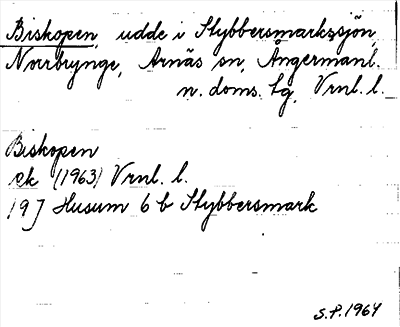 Biskopen, udde i Stybbersmarkssjön,
Norrbrynge, Arnäs sn, Ångermanl.
n. doms. tg, Vrnl. l.
Biskopen
ek (1963) Vrnl. l.
19 J Husum 6 b Stybbersmark
S.P. 1964